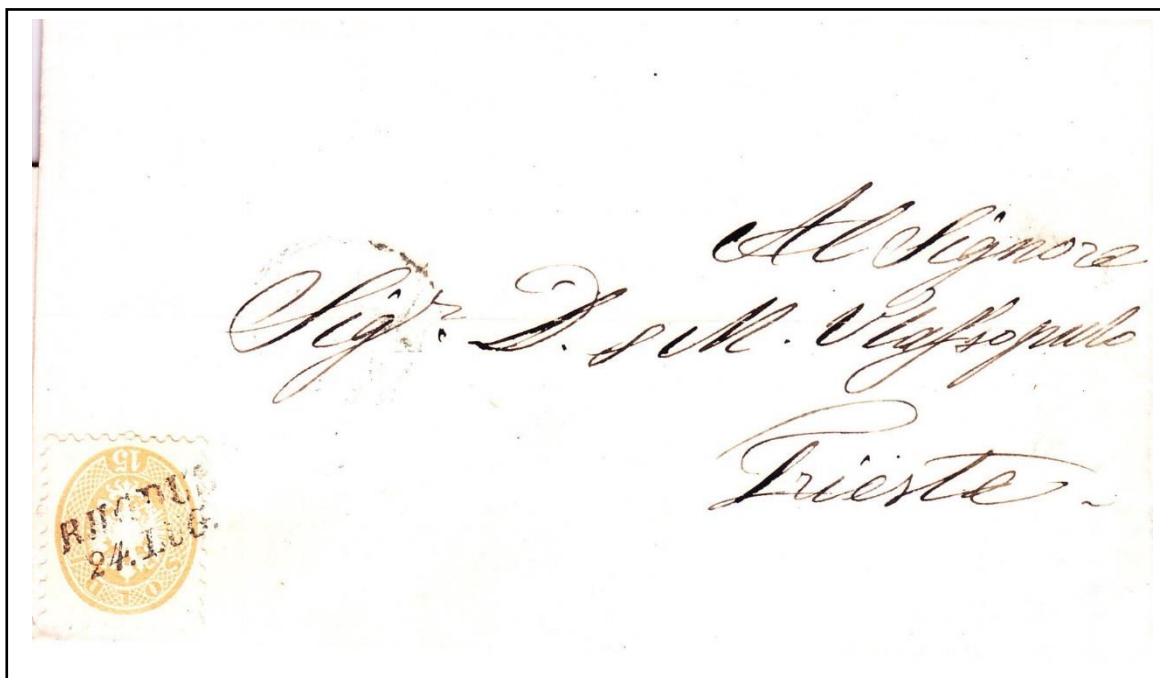 Al Signore
Sig.r D. & M. Vlassopulo
Trieste
15
SOLDI
24. LUG.